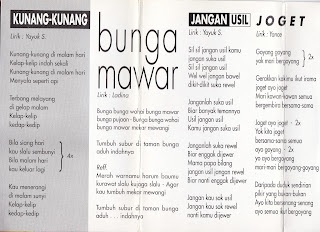 KUNANG-KUNANG
Lirik : Yayuk S.
Kunang-kunang di malam hari
Kelap-kelip indah sekali
Kunang-kunang di malam hari
Menyala seperti api
Terbang melayang
di gelap malam
Kelap-kelip
kedap-kedip
Bila siang hari
kau slalu sembunyi
Bila malam hari
kau keluar lagi
4x
Kau menerangi
di malam sunyi
Kelap-kelip
kedap-kedip
bunga
mawar
Lirik : Ladina
Bunga bunga wahai bunga mawar
bunga pujaan - Bunga bunga wahai
bunga mawar mekar mewangi
Tumbuh subur di taman bunga
aduh indahnya
Reff.
Merah warnamu harum baumu
kurawat slalu kujaga slalu - Agar
kau tumbuh mekar mewangi
Tumbuh subur di taman bunga
aduh . . . indahnya
JANGAN USIL
Lirik : Yayuk S.
Sil sil jangan usil kamu
jangan suka usil
Sil sil jangan usil
Wel wel jangan bawel
dikit-dikit suka rewel
Janganlah suka usil
Biar banyak temannya
Usil jangan usil
Kamu jangan suka usil
Janganlah suka rewel
Biar enggak dijewer
Mama papa bilang
jangan usil jangan rewel
Biar nanti enggak dijewer
Jangan kau sok usil
Jangan kau sok rewel
nanti kamu dijewer
JOGET
Lirik : Yance
Goyang goyang
yok mari bergoyang
2x
Gerakkan kakimu ikut irama
joget ayo joget
Mari kawan-kawan semua
bergembira bersama-sama
Joget ayo joget - 2x
Yok kita joget
bersama-sama
Ayo bergoyang - 2x
ya ayo bergoyang
mari mari bergoyang-goyang
Daripada duduk sendirian
pikir yang bukan-bukan
Ayo kita bersenang-senang
ayo semua ikut bergoyang